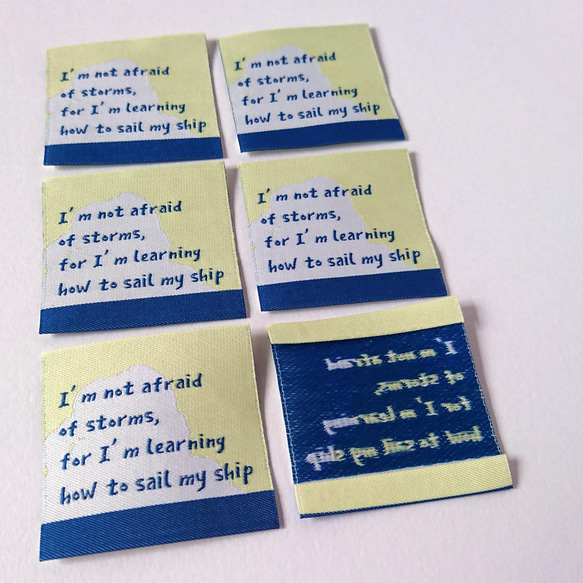 I'm not afraid
of storms,
for I'm learning
how to sail my ship
I'm not afraid
of storms,
for I'm learning
how to sail my ship
I'm not afraid
of storms,
for I'm learning
how to sail my ship
I'm not afraid
of storms,
for I'm learning
how to sail my ship
I'm not afraid
of storms,
for I'm learning
how to sail my ship
I'm not afraid
of storms,
for I'm learning
how to sail my ship